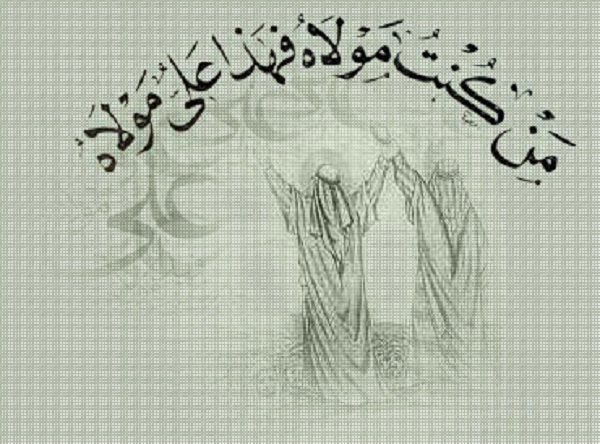 مَنْ كُنْتُ مَوْلَاهُ فَهَذَا عَلِىٌّ مَوْلَاهُ
علی